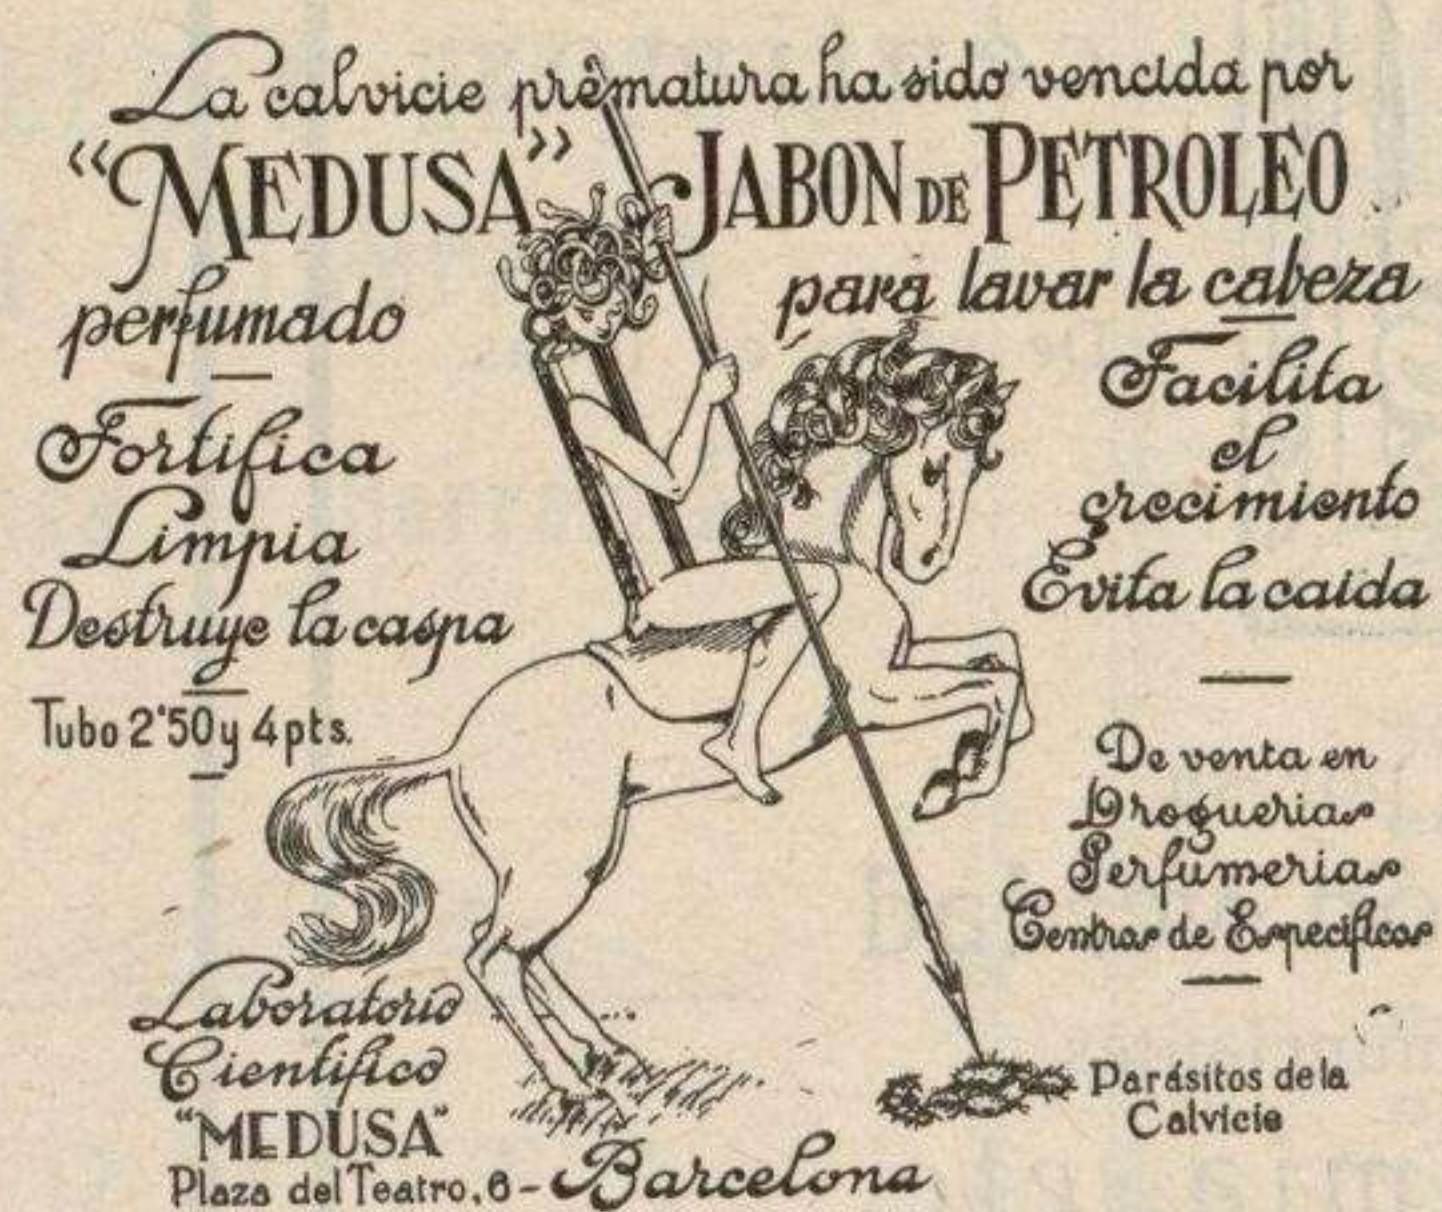 La calvicie prematura ha sido vencida por
“MEDUSA” JABON DE PETROLEO
perfumado
para lavar la cabeza
Fortifica
Limpia
Destruye la caspa
Tubo 2'50 y 4 pts.
Facilita
el
crecimiento
Evita la caida
De venta en
Droguerias
Perfumerias
Centros de Especificos
Parásitos de la
Calvicie
Laboratorio
Cientifico
"MEDUSA"
Plaza del Teatro, 6 - Barcelona